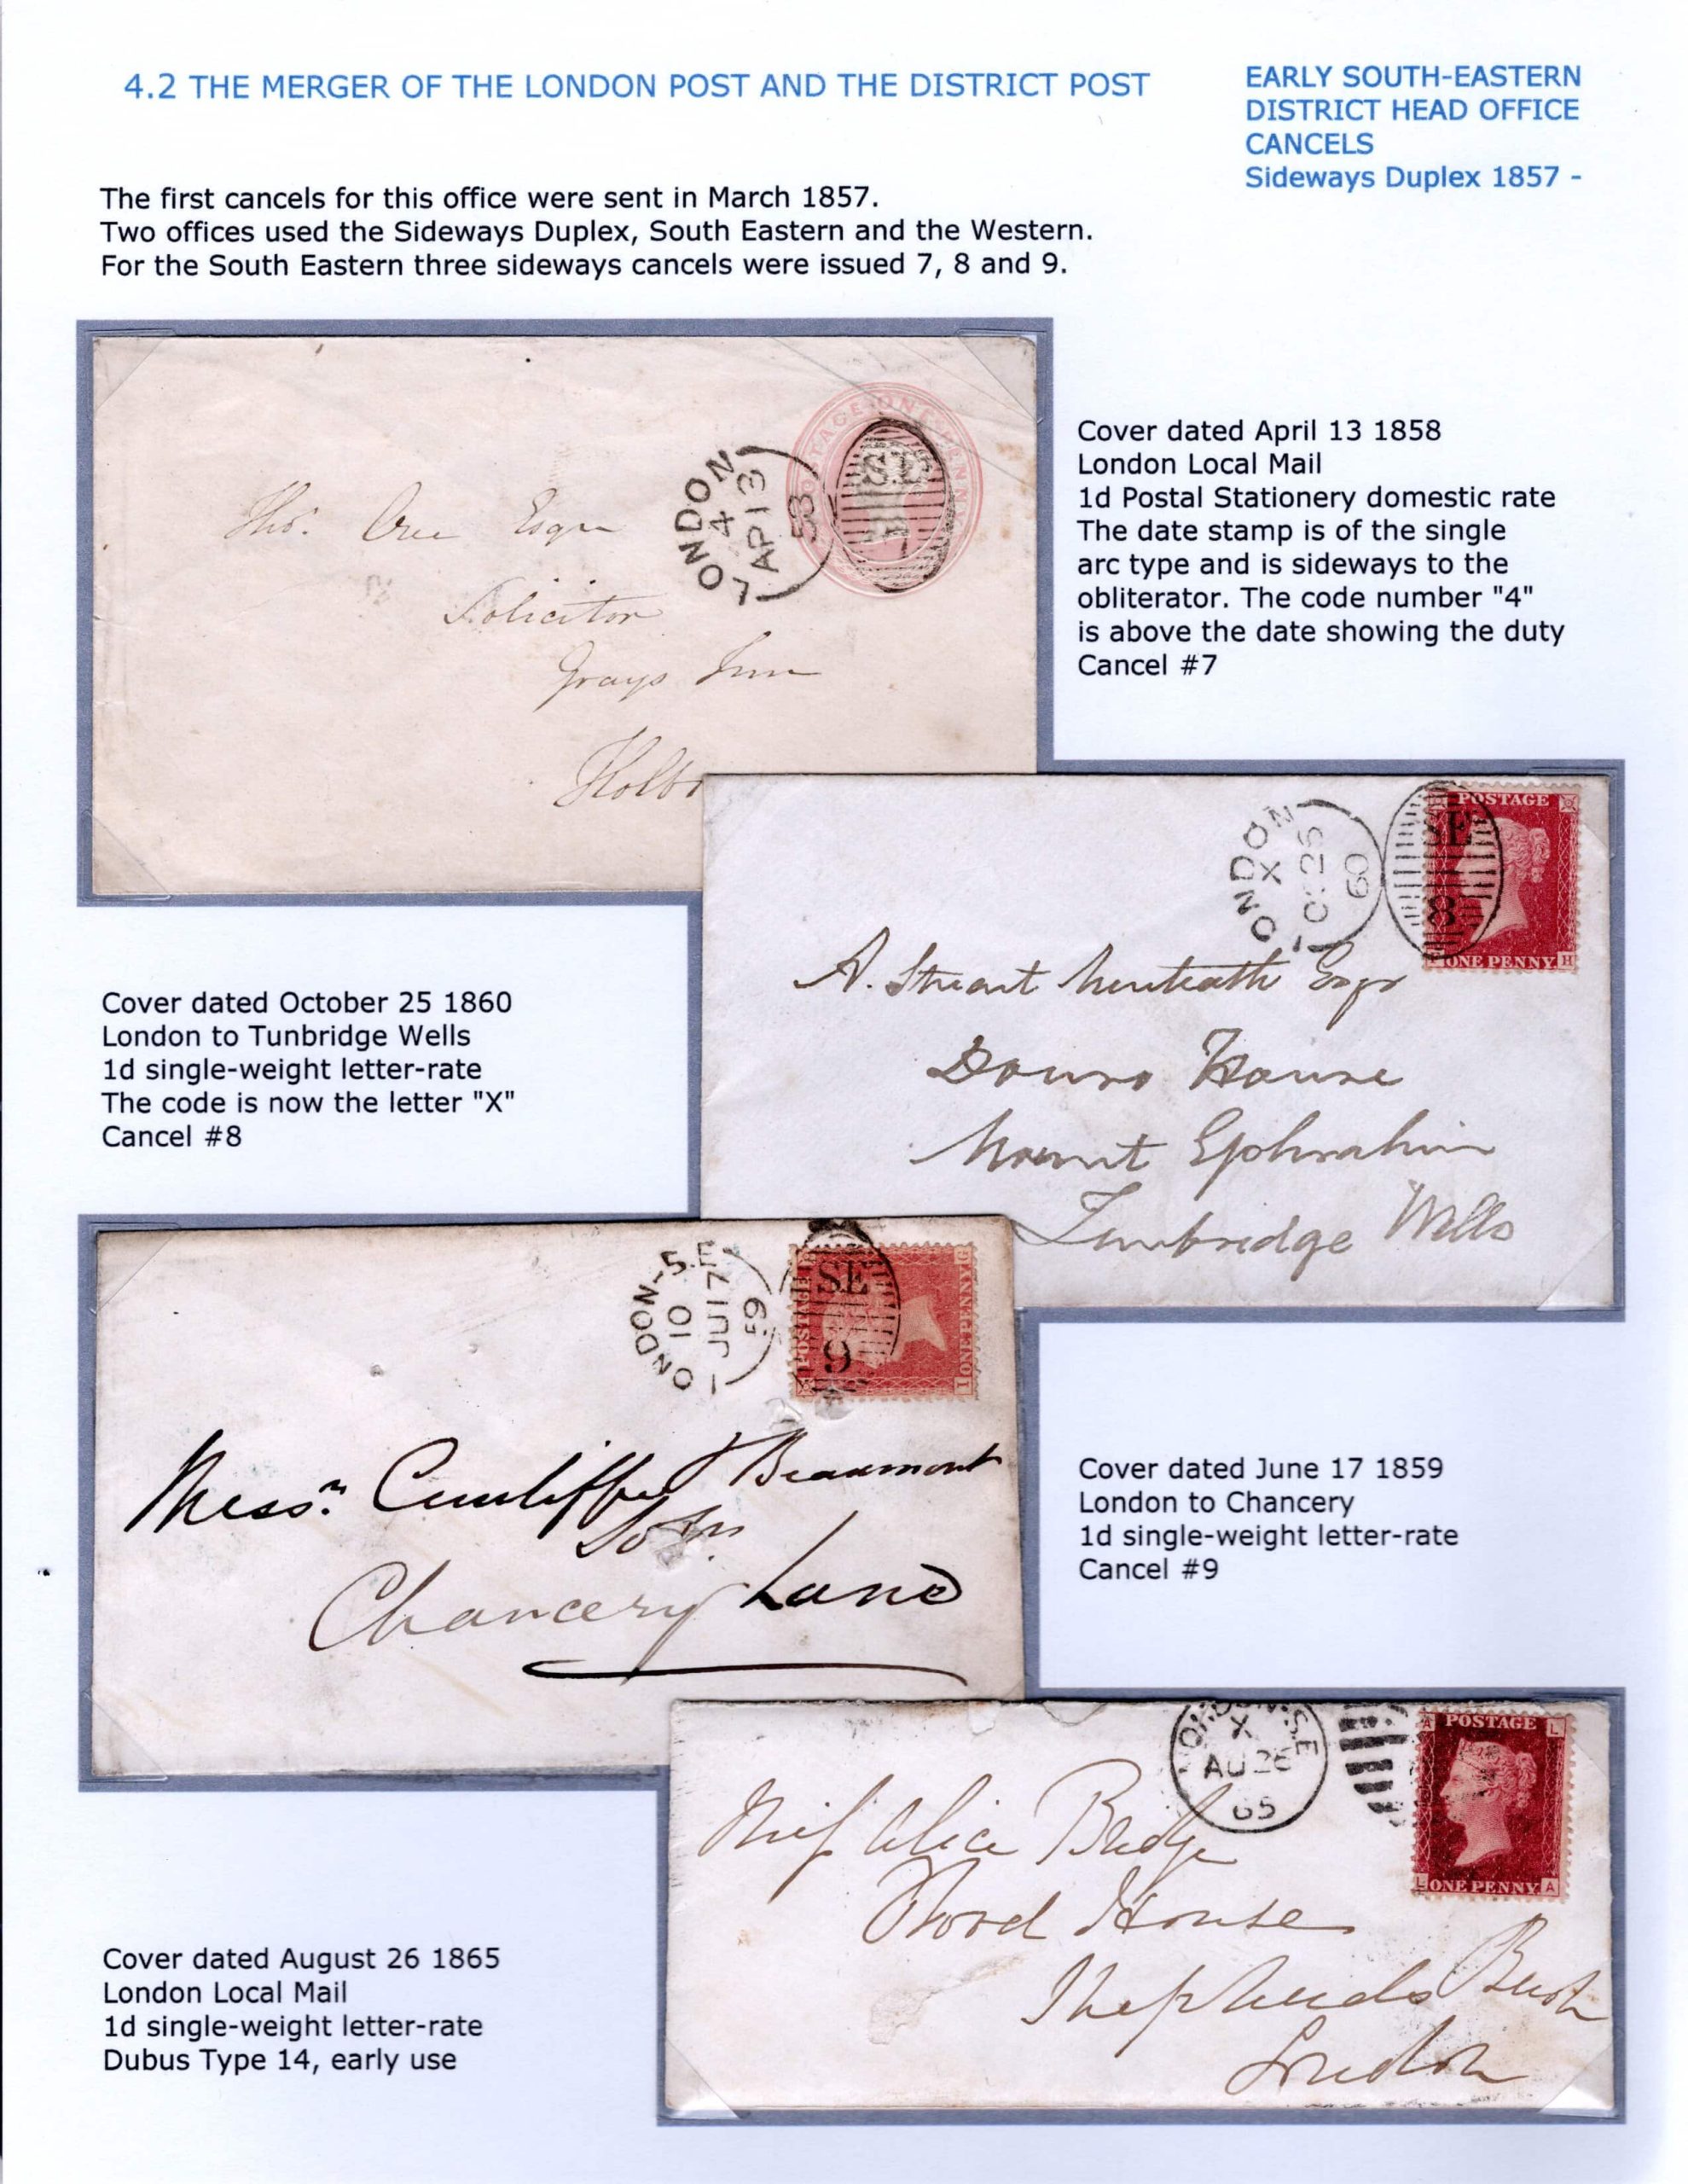 4.2 THE MERGER OF THE LONDON POST AND THE DISTRICT POST
EARLY SOUTH-EASTERN
DISTRICT HEAD OFFICE
CANCELS
Sideways Duplex 1857 -
The first cancels for this office were sent in March 1857.
Two offices used the Sideways Duplex, South Eastern and the Western.
For the South Eastern three sideways cancels were issued 7, 8 and 9.
POSTAGE ONE PENNY
LONDON
4
AP 13
58
SE
7
Thos. Esqre
Solicitor
Grays Inn
Holbo
Cover dated April 13 1858
London Local Mail
1d Postal Stationery domestic rate
The date stamp is of the single
arc type and is sideways to the
obliterator. The code number "4"
is above the date showing the duty
Cancel #7
LONDON
X
OC 25
60
SE
8
POSTAGE
ONE PENNY
H
A. Stuart Menteath Esqr
Douro House
Mount Ephraim
Tunbridge Wells
Cover dated October 25 1860
London to Tunbridge Wells
1d single-weight letter-rate
The code is now the letter "X"
Cancel #8
LONDON-S.E
10
JU 17
59
SE
9
POSTAGE
ONE PENNY
I
G
Messrs. Cunliffe & Beaumont
Chancery Lane
Cover dated June 17 1859
London to Chancery
1d single-weight letter-rate
Cancel #9
LONDON.S.E
X
AU 26
65
A POSTAGE L
L ONE PENNY A
Miss Alice Budge
House
Shepherds Bush
London
Cover dated August 26 1865
London Local Mail
1d single-weight letter-rate
Dubus Type 14, early use